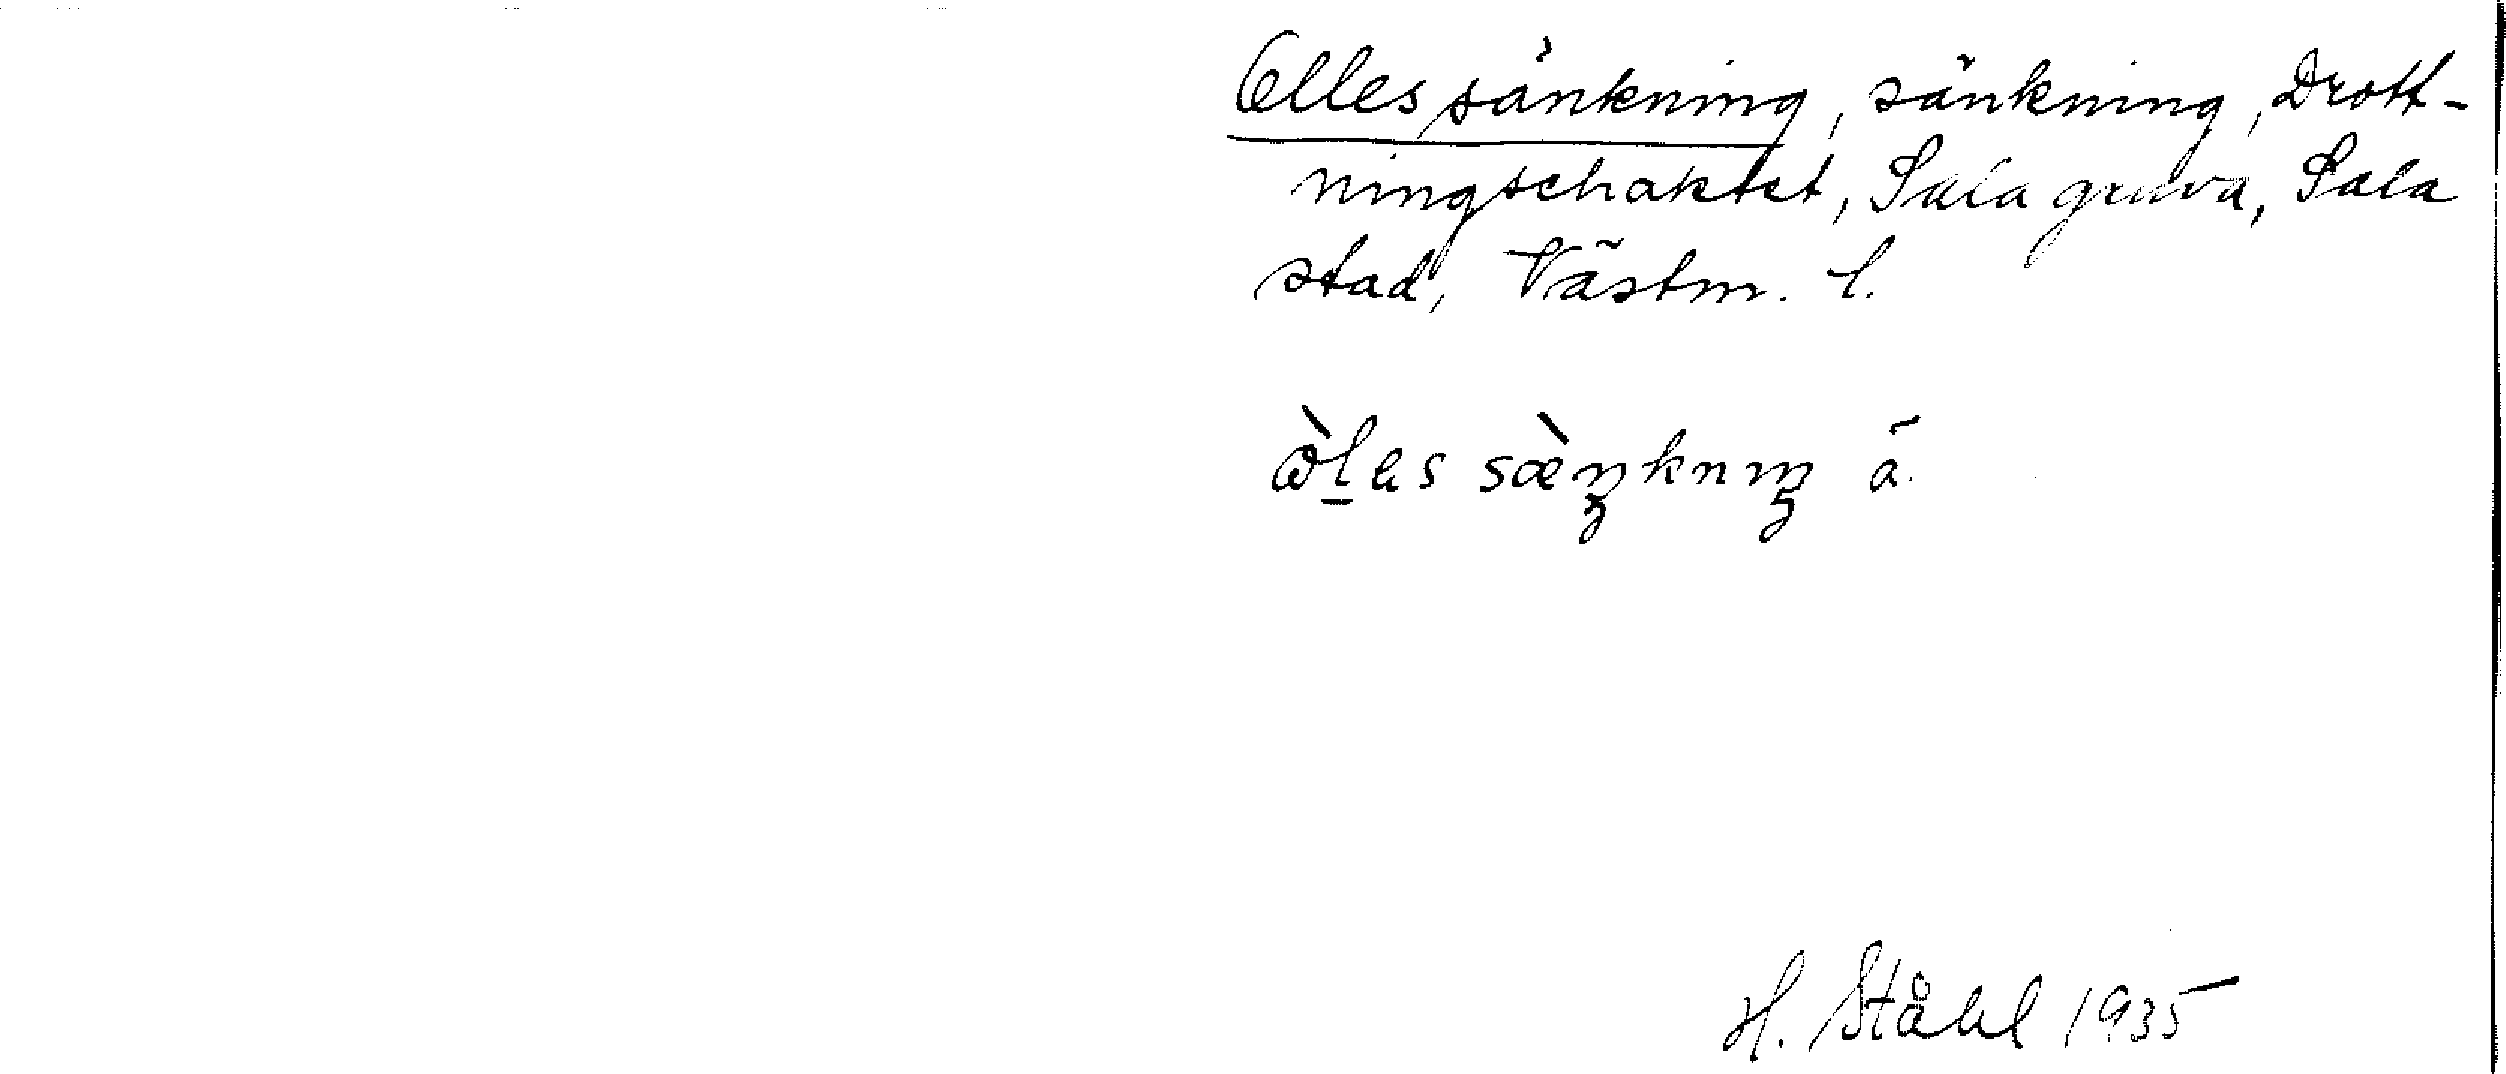 Olles sänkning, sänkning, Drott-
ningschaktet, Sala gruva, Sala
stad, Västm. l.
sæŋknıŋ
H. Ståhl 1935